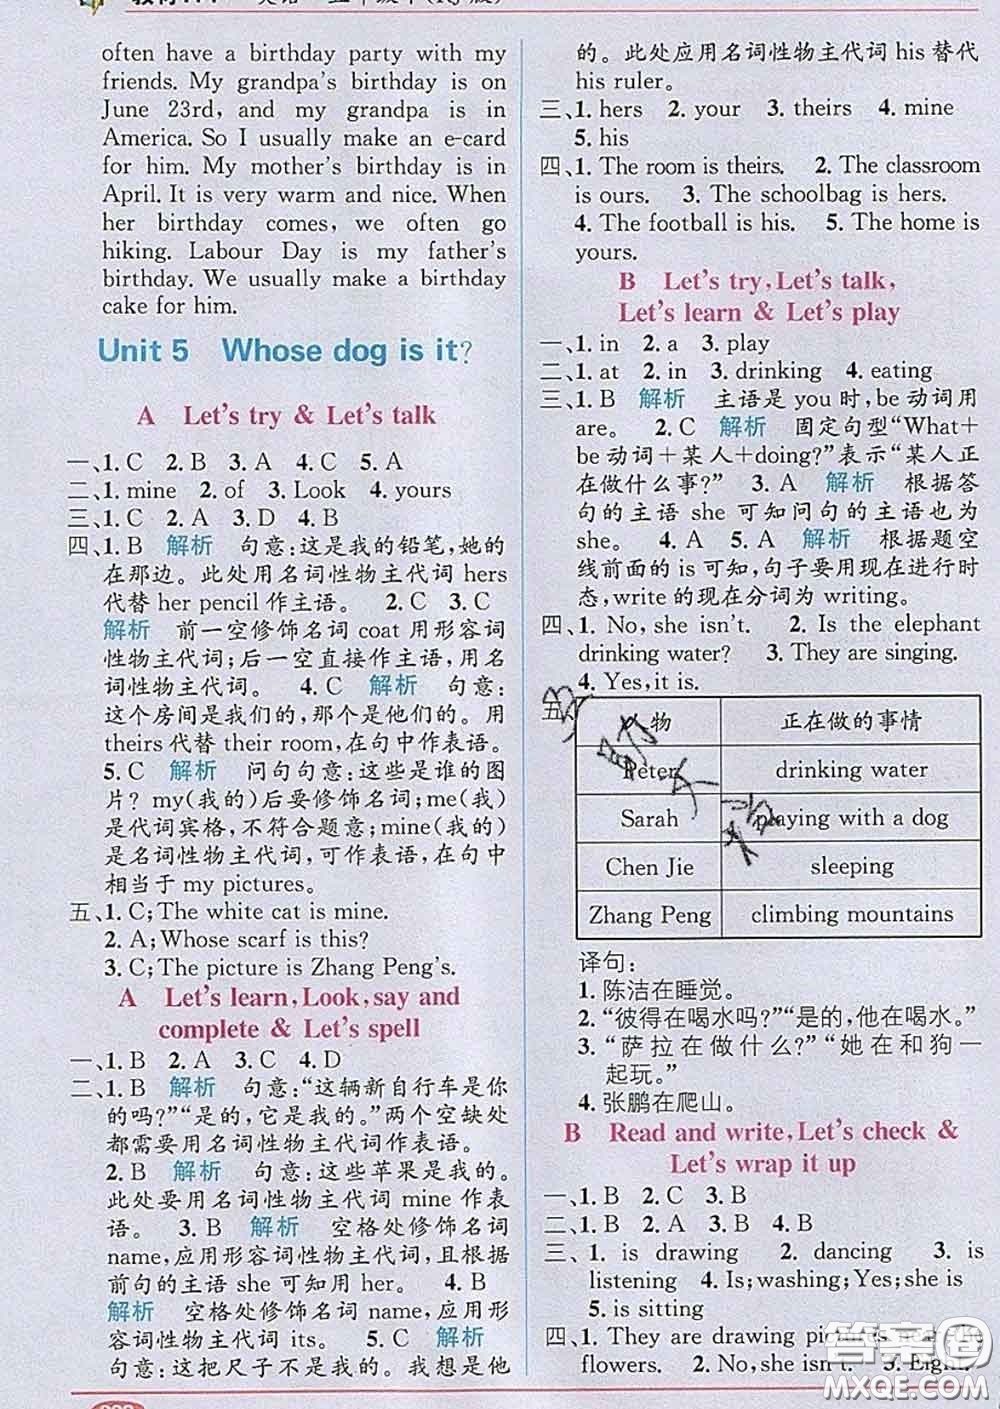 often have a birthday party with my
friends. My grandpa's birthday is on
June 23rd, and my grandpa is in
America. So I usually make an e-card
for him. My mother's birthday is in
April. It is very warm and nice. When
her birthday comes, we often go
hiking. Labour Day is my father's
birthday. We usually make a birthday
cake for him.
Unit 5 Whose dog is it?
A Let's try & Let's talk
一、1. C 2. B 3. A 4. C 5. A
二、1. mine 2. of 3. Look 4. yours
三、1. C 2. A 3. D 4. B
四、1. B 解析 句意:这是我的铅笔,她的
在那边。此处用名词性物主代词 hers
代替 her pencil 作主语。 2. C 3. C
解析 前一空修饰名词 coat 用形容词
性物主代词;后一空直接作主语,用名
词性物主代词。 4. C 解析 句意:
这个房间是我们的,那个是他们的。用
theirs 代替 their room,在句中作表语。
5. C 解析 问句句意:这些是谁的图
片? my(我的)后要修饰名词;me(我)
是代词宾格,不符合题意;mine(我的)
是名词性物主代词,可作表语,在句中
相当于 my pictures。
五、1. C;The white cat is mine.
2. A;Whose scarf is this?
3. C;The picture is Zhang Peng's.
A Let's learn, Look, say and
complete & Let's spell
一、1. B 2. A 3. C 4. D
二、1. B 解析 句意:“这辆新自行车是你
的吗?”“是的,它是我的。”两个空缺处
都需要用名词性物主代词作表语。
2. B 解析 句意:这些苹果是我的。
此处要用名词性物主代词 mine 作表
语。 3. B 解析 空格处修饰名词
name,应用形容词性物主代词,且根据
前句的主语 she 可知用 her。 4. B
解析 空格处修饰名词 name,应用形
容词性物主代词 its。 5. C 解析
句意:这把尺子不是我的。我想是他
的。此处应用名词性物主代词 his 替代
his ruler。
三、1. hers 2. your 3. theirs 4. mine
5. his
四、1. The room is theirs. 2. The classroom
is ours. 3. The schoolbag is hers.
4. The football is his. 5. The home is
yours.
B Let's try, Let's talk,
Let's learn & Let's play
一、1. in 2. a 3. play
二、1. at 2. in 3. drinking 4. eating
三、1. B 解析 主语是 you 时,be 动词用
are。 2. C 解析 固定句型“What+
be 动词+某人+doing?”表示“某人正
在做什么事?” 3. A 解析 根据答
句的主语 she 可知问句的主语也为
she。 4. A 5. A 解析 根据题空
线前面的 is 可知,句子要用现在进行时
态,write 的现在分词为 writing。
四、1. No, she isn't. 2. Is the elephant
drinking water? 3. They are singing.
4. Yes, it is.
五、
人物 正在做的事情
Peter drinking water
Sarah playing with a dog
Chen Jie sleeping
Zhang Peng climbing mountains
译句:
1. 陈洁在睡觉。
2. “彼得在喝水吗?”“是的,他在喝水。”
3. “萨拉在做什么?”“她在和狗一
起玩。”
4. 张鹏在爬山。
B Read and write, Let's check &
Let's wrap it up
一、1. B 2. C 3. B
二、1. B 2. A 3. B 4. B
三、1. is drawing 2. dancing 3. is
listening 4. Is;washing;Yes;she is
5. is sitting
四、1. They are drawing pictures
flowers. 2. No, she isn't. 3. Eight
答案圈
MXQE.COM